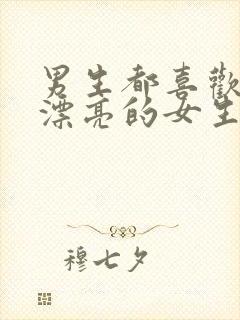 男生都喜歡
漂亮的女生
穆七夕